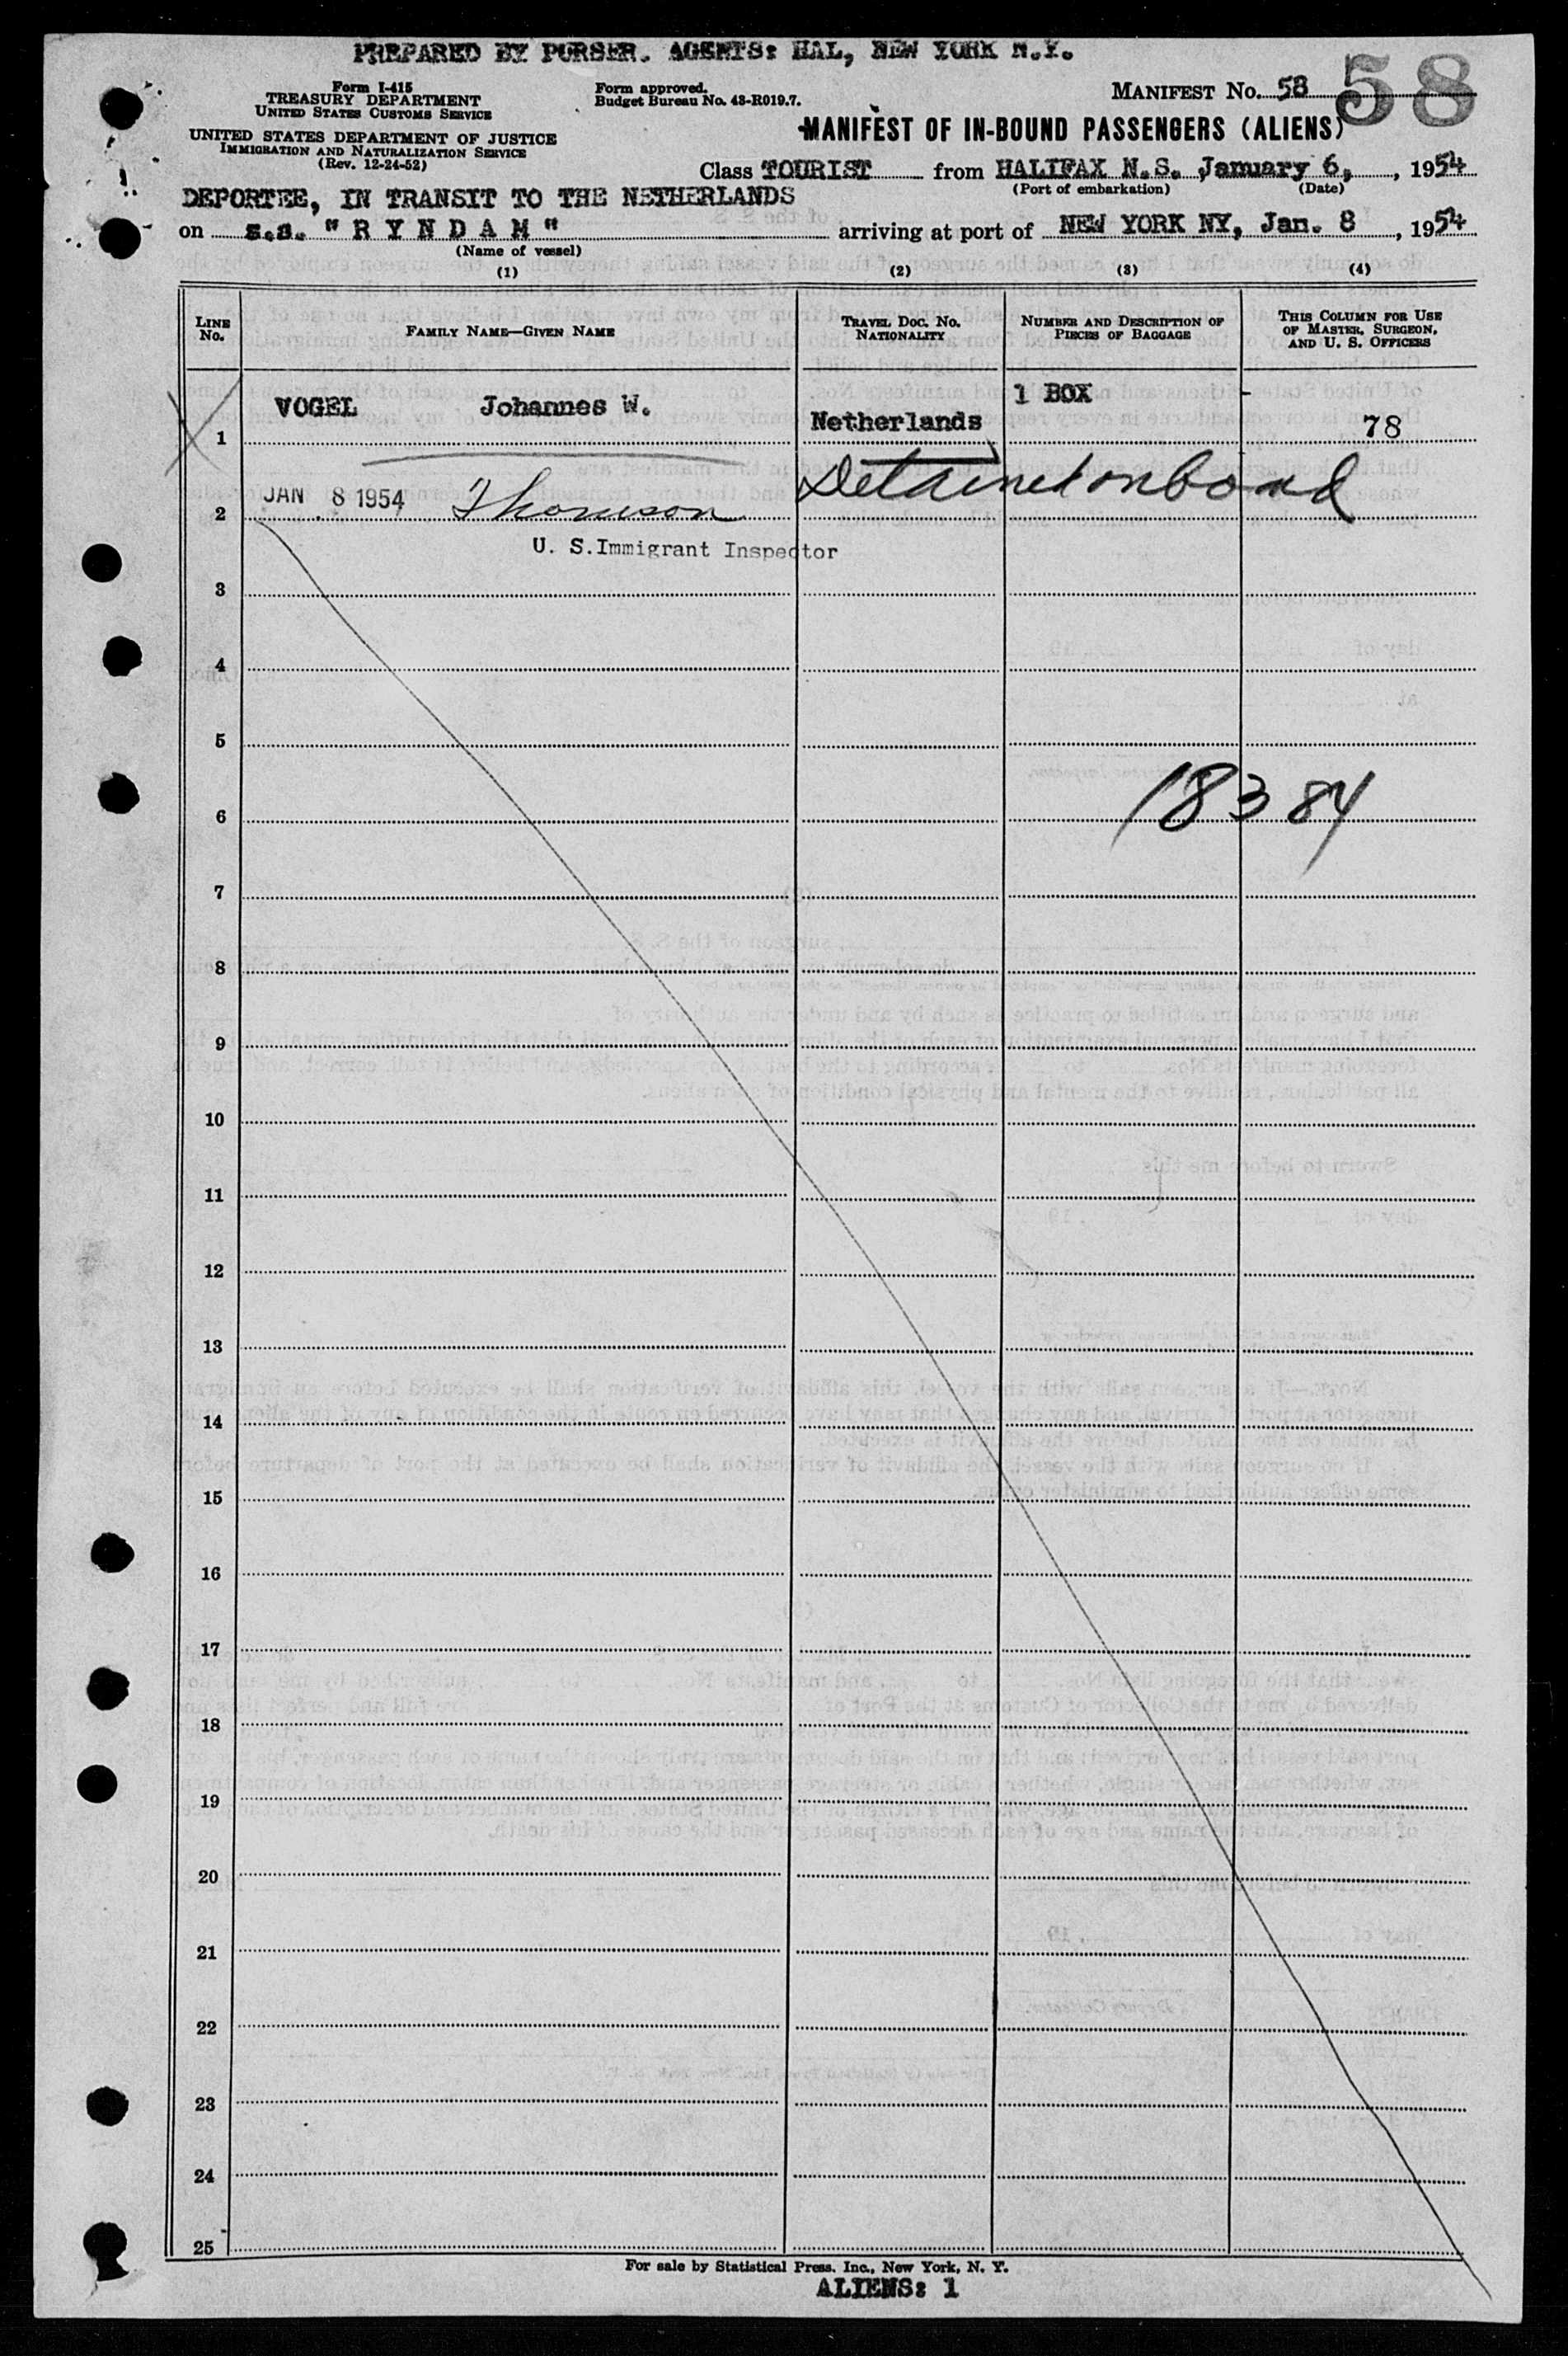 PREPARED BY PURSER. AGENTS: HAL, NEW YORK N.Y.
Form I-415
TREASURY DEPARTMENT
UNITED STATES CUSTOMS SERVICE
UNITED STATES DEPARTMENT OF JUSTICE
IMMIGRATION AND NATURALIZATION SERVICE
(Rev. 12-24-52)
Form approved.
Budget Bureau No. 43-R019.7.
MANIFEST No. 58
58
MANIFEST OF IN-BOUND PASSENGERS (ALIENS)
Class TOURIST from HALIFAX N.S. January 6, , 1954
(Port of embarkation) (Date)
DEPORTEE, IN TRANSIT TO THE NETHERLANDS
on s.s. "RYNDAM" arriving at port of NEW YORK NY, Jan. 8 , 1954
(Name of vessel)
(1) (2) (3) (4)
LINE No. FAMILY NAME—GIVEN NAME TRAVEL DOC. NO. NATIONALITY NUMBER AND DESCRIPTION OF PIECES OF BAGGAGE THIS COLUMN FOR USE OF MASTER, SURGEON, AND U. S. OFFICERS
1 VOGEL Johannes W. Netherlands 1 BOX - 78
2 JAN 8 1954 Thomson Detained on board
U. S. Immigrant Inspector
3
4
5
6 18384
7
8
9
10
11
12
13
14
15
16
17
18
19
20
21
22
23
24
25
For sale by Statistical Press, Inc., New York, N. Y.
ALIENS: 1